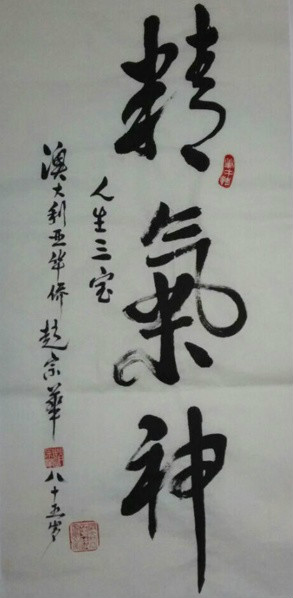 精氣神
人生三宝
澳大利亚华侨赵宗華八十五岁